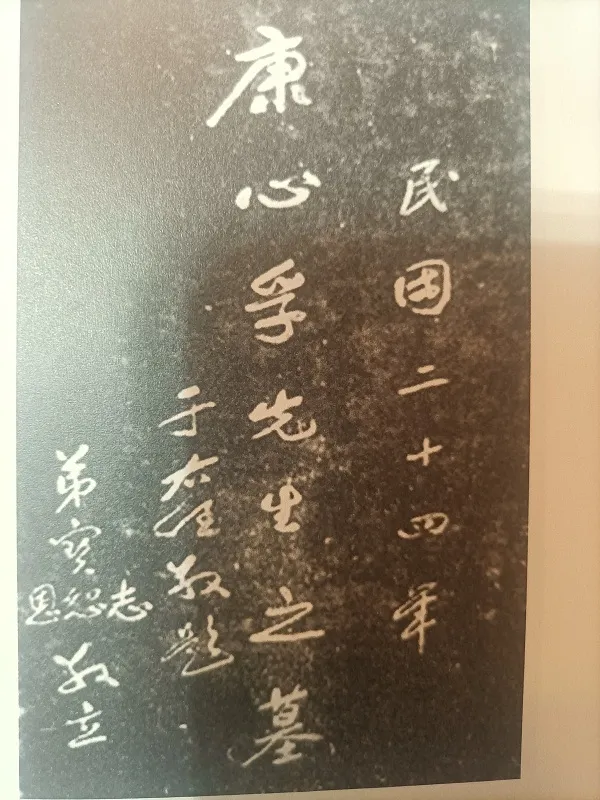 民國二十四年
康心孚先生之墓
于右任敬題
弟寶志恕恩敬立